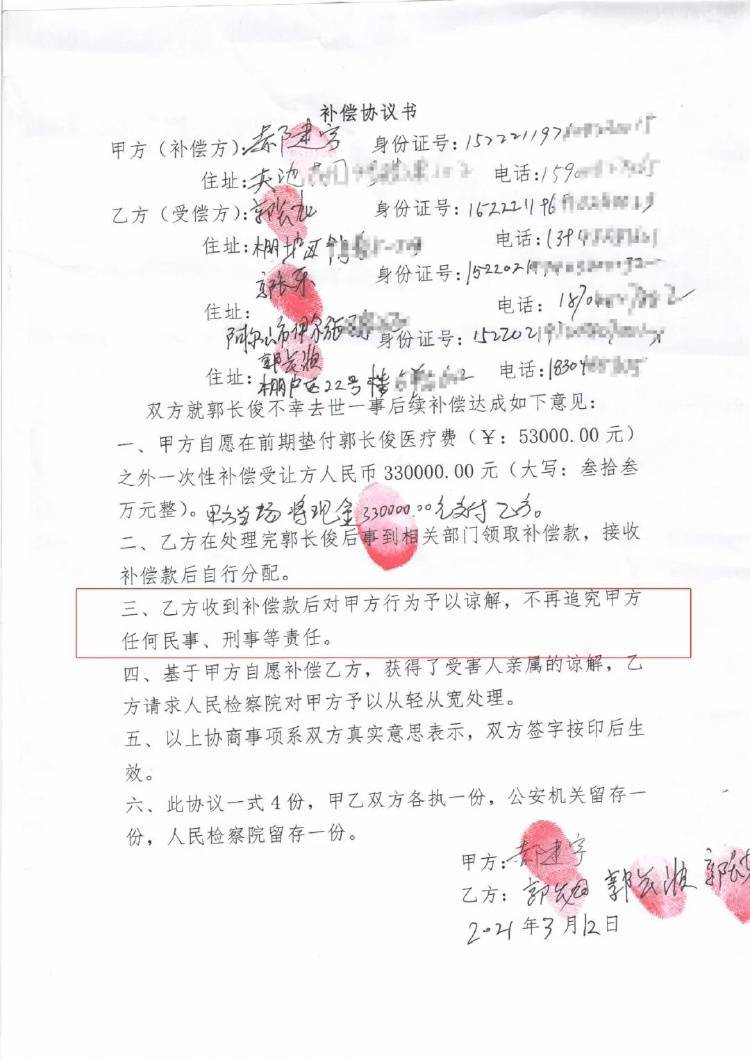 补偿协议书
甲方（补偿方）：郝建宇 身份证号：152221197
住址： 电话：159
乙方（受偿方）：郭长 身份证号：152221196
住址：棚 电话：1394
郭长 身份证号：152202
住址： 电话：1870
阿尔山市伊尔 身份证号：152202
郭长
住址：棚户区22号楼 电话：18304
双方就郭长俊不幸去世一事后续补偿达成如下意见：
一、甲方自愿在前期垫付郭长俊医疗费（￥：53000.00元）
之外一次性补偿受让方人民币330000.00元（大写：叁拾叁
万元整）。甲方当场将现金330000.00元支付乙方。
二、乙方在处理完郭长俊后事到相关部门领取补偿款，接收
补偿款后自行分配。
三、乙方收到补偿款后对甲方行为予以谅解，不再追究甲方
任何民事、刑事等责任。
四、基于甲方自愿补偿乙方，获得了受害人亲属的谅解，乙
方请求人民检察院对甲方予以从轻从宽处理。
五、以上协商事项系双方真实意思表示，双方签字按印后生
效。
六、此协议一式4份，甲乙双方各执一份，公安机关留存一
份，人民检察院留存一份。
甲方：郝建宇
乙方：郭长 郭长 郭长
2021年3月12日